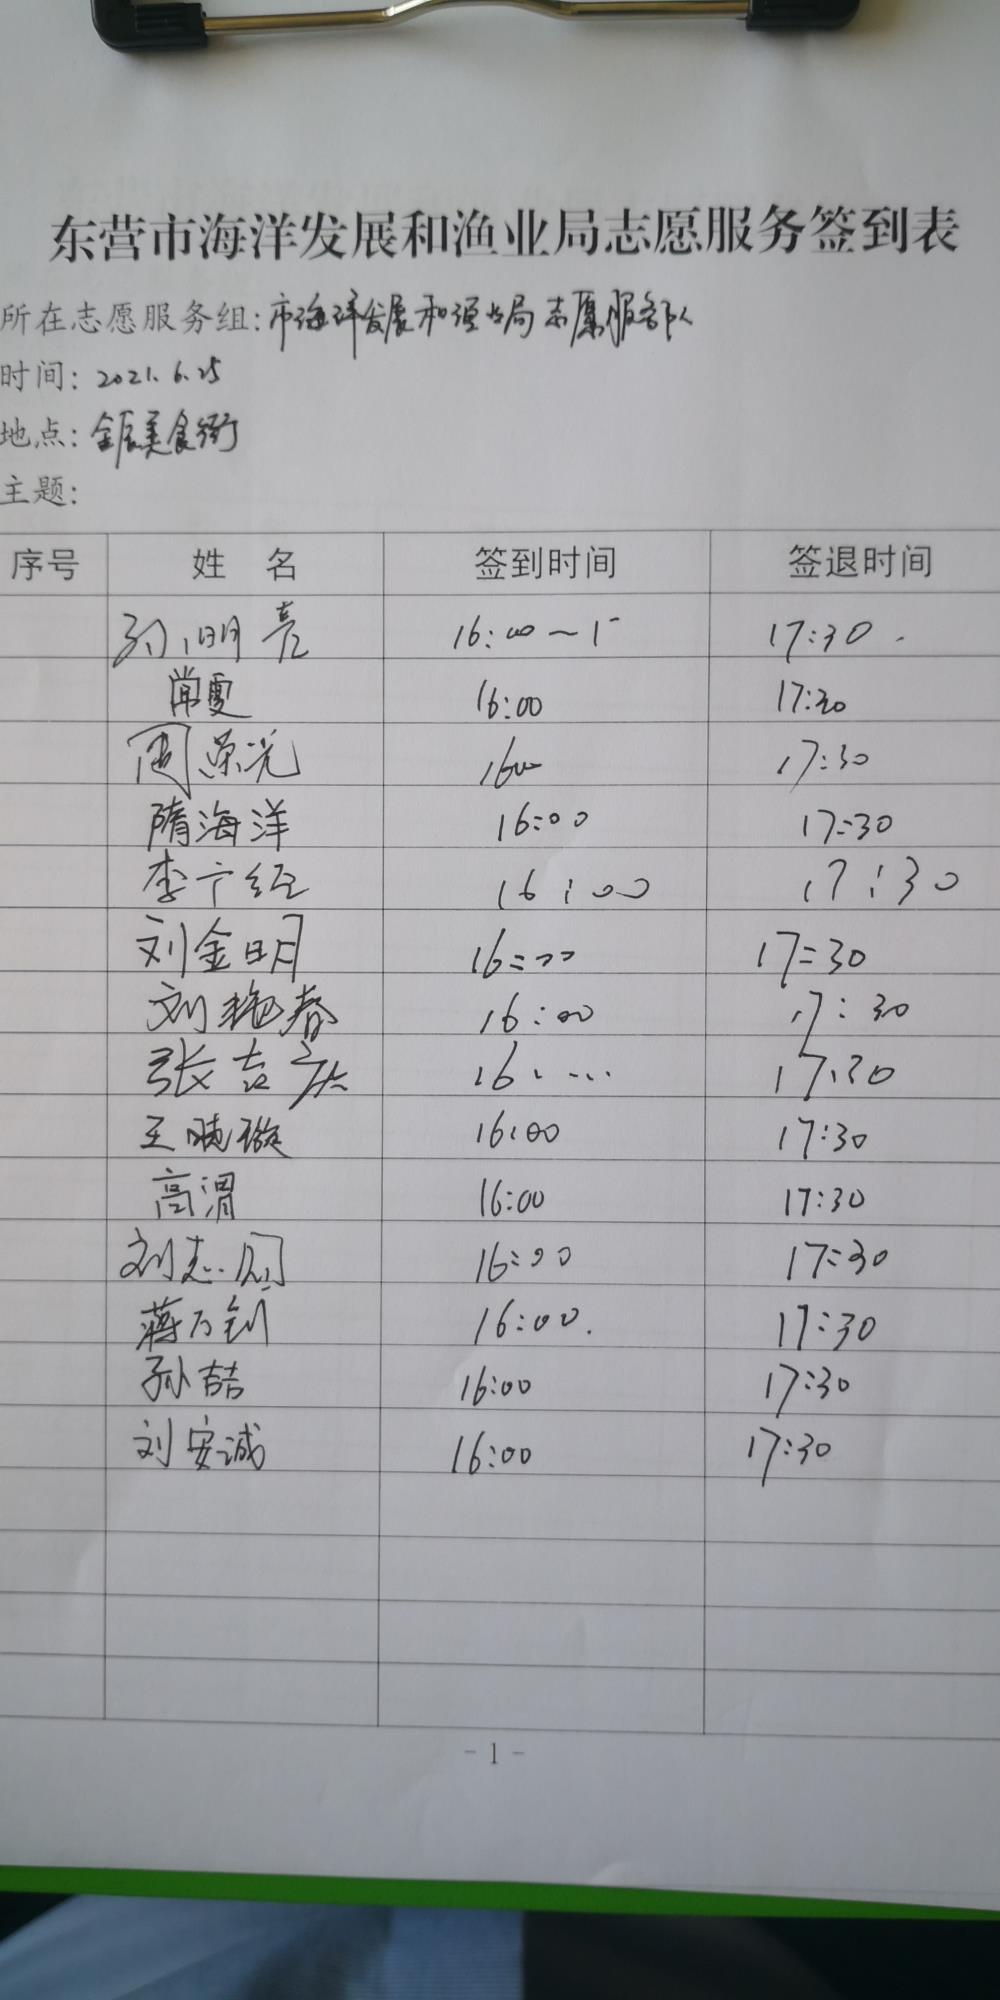 东营市海洋发展和渔业局志愿服务签到表
所在志愿服务组: 市海洋发展和渔业局志愿服务队
时间: 2021.6.25
地点: 金辰美食街
主题:
序号 姓 名 签到时间 签退时间
孙明亮 16:00 17:30
常雯 16:00 17:30
周荣光 1600 17:30
隋海洋 16:00 17:30
李 16:00 17:30
刘金明 16:00 17:30
刘艳春 16:00 17:30
张吉庆 16 17:30
王晓璇 16:00 17:30
高渭 16:00 17:30
刘志刚 16:00 17:30
蒋乃钊 16:00. 17:30
孙喆 16:00 17:30
刘安诚 16:00 17:30
- 1 -